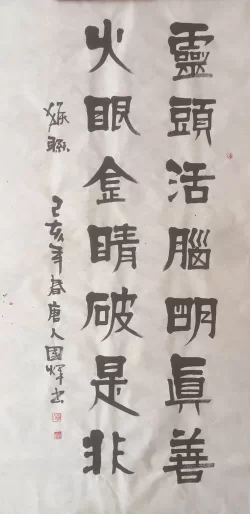 靈頭活腦明眞善
火眼金睛破是非
猴聯
己亥年春唐人國輝书